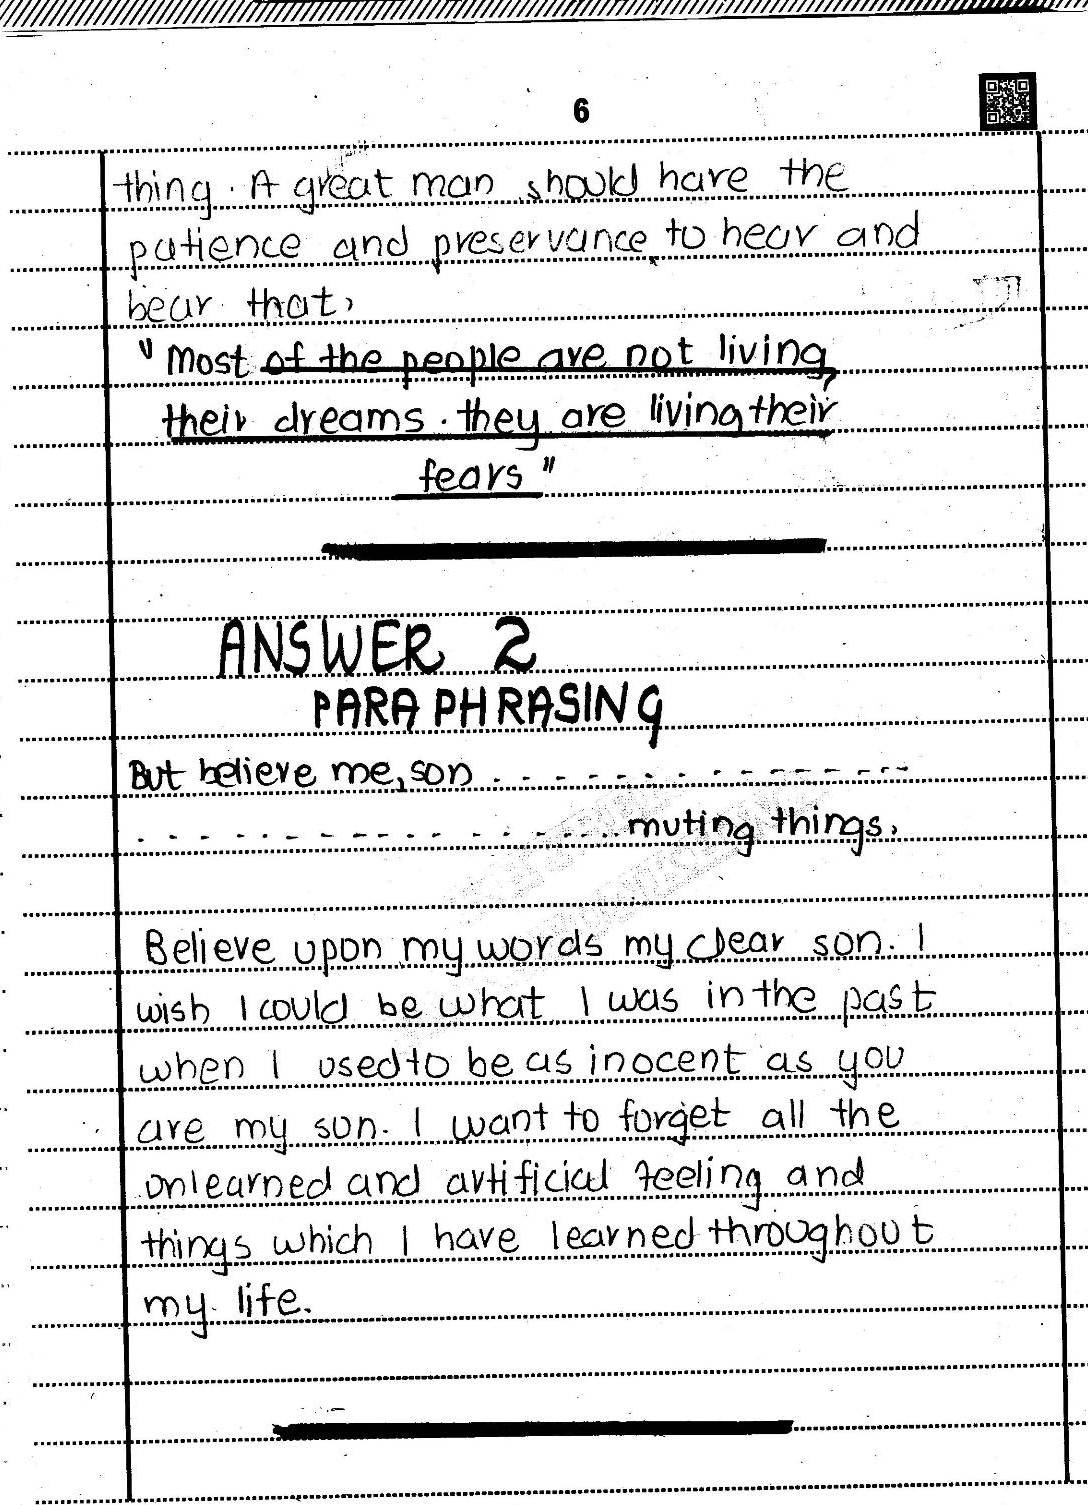 6
thing. A great man should have the
patience and preservance to hear and
bear that,
"Most of the people are not living
their dreams. they are living their
fears"
ANSWER 2
PARAPHRASING
But believe me, son . . - - - - . - . - - - - - - -
. - - - . - - - - - - - - . . . muting things.
Believe upon my words my dear son. I
wish I could be what I was in the past
when I used to be as inocent as you
are my son. I want to forget all the
onlearned and artificial feeling and
things which I have learned throughout
my life.